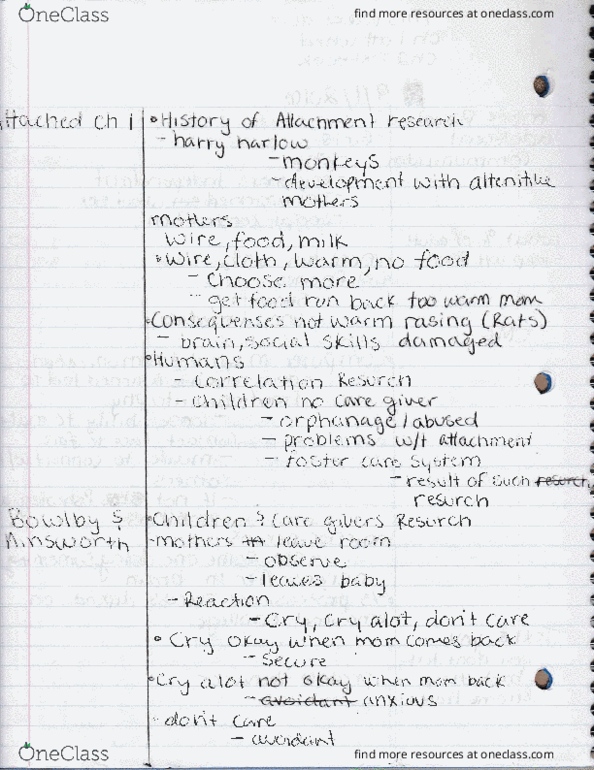 OneClass
find more resources at oneclass.com
ttached Ch 1
• History of Attachment research
- harry harlow
- monkeys
- development with altenitive
mothers
mothers
Wire, food, milk
• Wire, Cloth, warm, no food
- Choose more
- get food run back too warm mom
• Consequenses not warm rasing (Rats)
- brain, social skills damaged
• Humans
- Correlation Resurch
- Children no care giver
- orphanage/abused
- problems w/t attachment
- foster care system
- result of such resurch
resurch
Bowlby &
Ainsworth
• Children & Care givers Resurch
- mothers leave room
- observe
- leaves baby
- Reaction
- Cry, Cry alot, don't care
• Cry okay when mom comes back
- Secure
• Cry alot not okay when mom back
- avoidant anxious
• don't care
- avoidant
OneClass
find more resources at oneclass.com